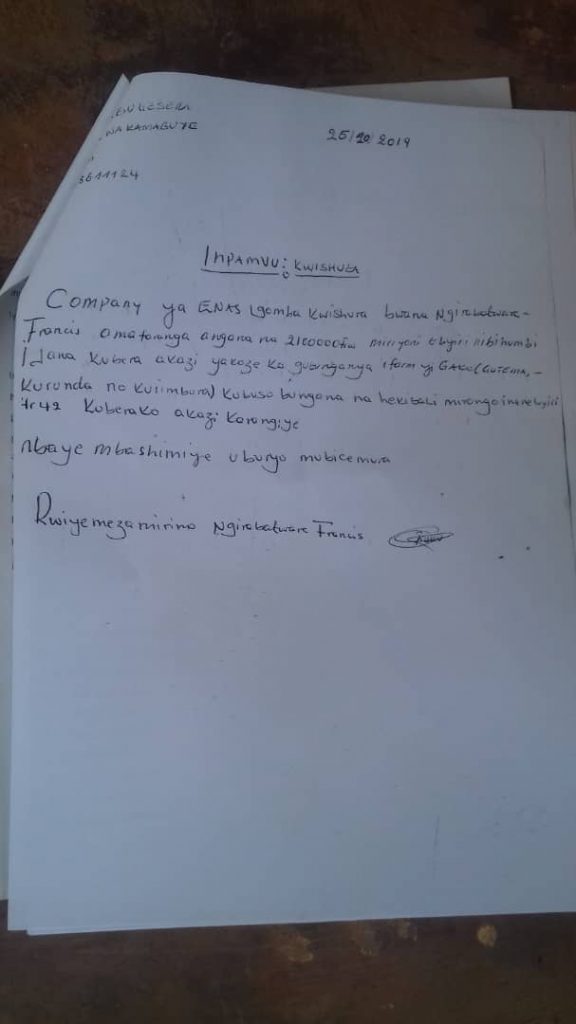 BUGESERA
NYAKAMABUYE
3611124
25/10/2019
IMPAMVU: KWISHURA
Company ya ENAS igomba kwishura bwana Ngirabatware-
Francis amafaranga angana na 2100000frw miriyoni ebyiri nibihumbi
Ijana kubera akazi yakoze ka gutunganya ifarm ya GAKO (GUTEMA,-
Kurunda no kurimbura) kubuso bungana na hekitali mirongo ine nebyiri
42 Kuberako akazi karangiye
nbaye mbashimiye uburyo mubicemura
Rwiyemezamirimo Ngirabatware Francis